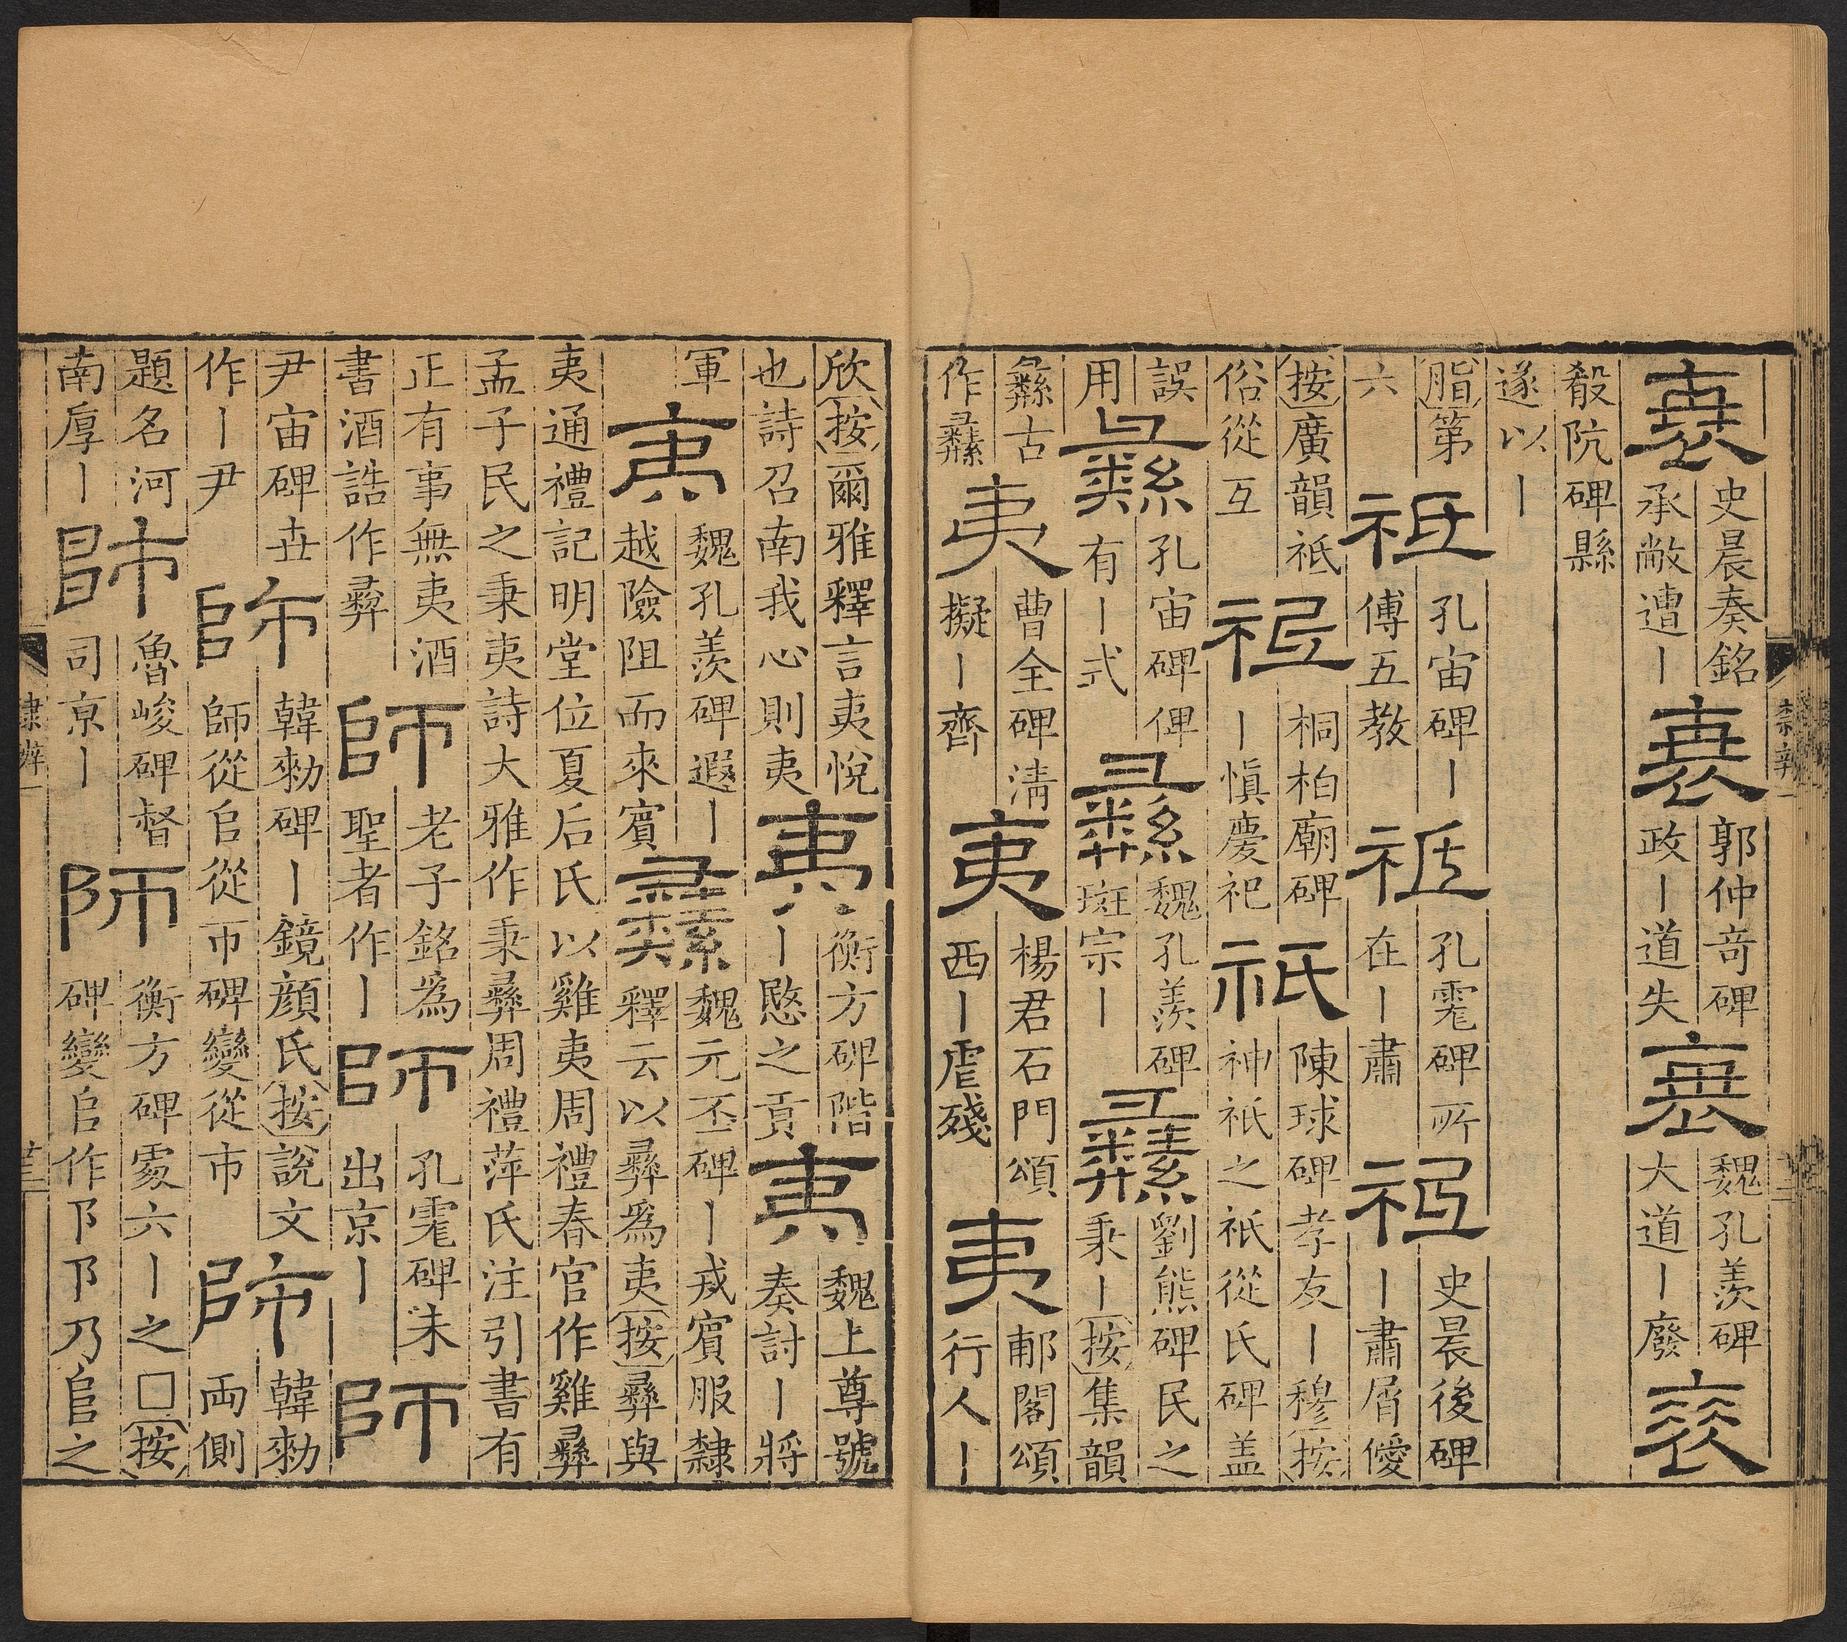 衰
史晨奏銘
承敝遭丨
衰
郭仲奇碑
政丨道失
衰
魏孔羨碑
大道丨廢
衰
殽阬碑縣
遂以丨
脂第
六
祗
孔宙碑丨
傅五教
祗
孔霓碑所
在丨肅
祗
史晨後碑
丨肅屑僾
按廣韻祗
俗從互
祗
桐柏廟碑
丨愼慶祀
祗
陳球碑孝友丨穆按
神祇之祇從氏碑盖
誤
用
彝
孔宙碑俾
有丨式
彝
魏孔羨碑
斑宗丨
彝
劉熊碑民之
秉丨按集韻
彝古
作彝
夷
曹全碑清
擬丨齊
夷
楊君石門頌
西丨虐殘
夷
郙閣頌
行人丨
欣按爾雅釋言夷悅
也詩召南我心則夷
夷
衡方碑階
丨愍之貢
夷
魏上尊號
奏討丨將
軍
夷
魏孔羨碑遐丨
越險阻而來賓
彝
魏元丕碑丨戎賓服隸
釋云以彝爲夷按彝與
夷通禮記明堂位夏后氏以雞夷周禮春官作雞彝
孟子民之秉夷詩大雅作秉彝周禮萍氏注引書有
正有事無夷酒
書酒誥作彝
師
老子銘爲
聖者作丨
師
孔霓碑朱
出京丨
師
尹宙碑丗
作丨尹
師
韓勑碑丨鏡顔氏按說文
師從𠂤從帀碑變從市
師
韓勑
両側
題名河
南厚丨
師
魯峻碑督
司京丨
師
衡方碑䖏六丨之□按
碑變𠂤作阝阝乃𨸏之
隸辨一